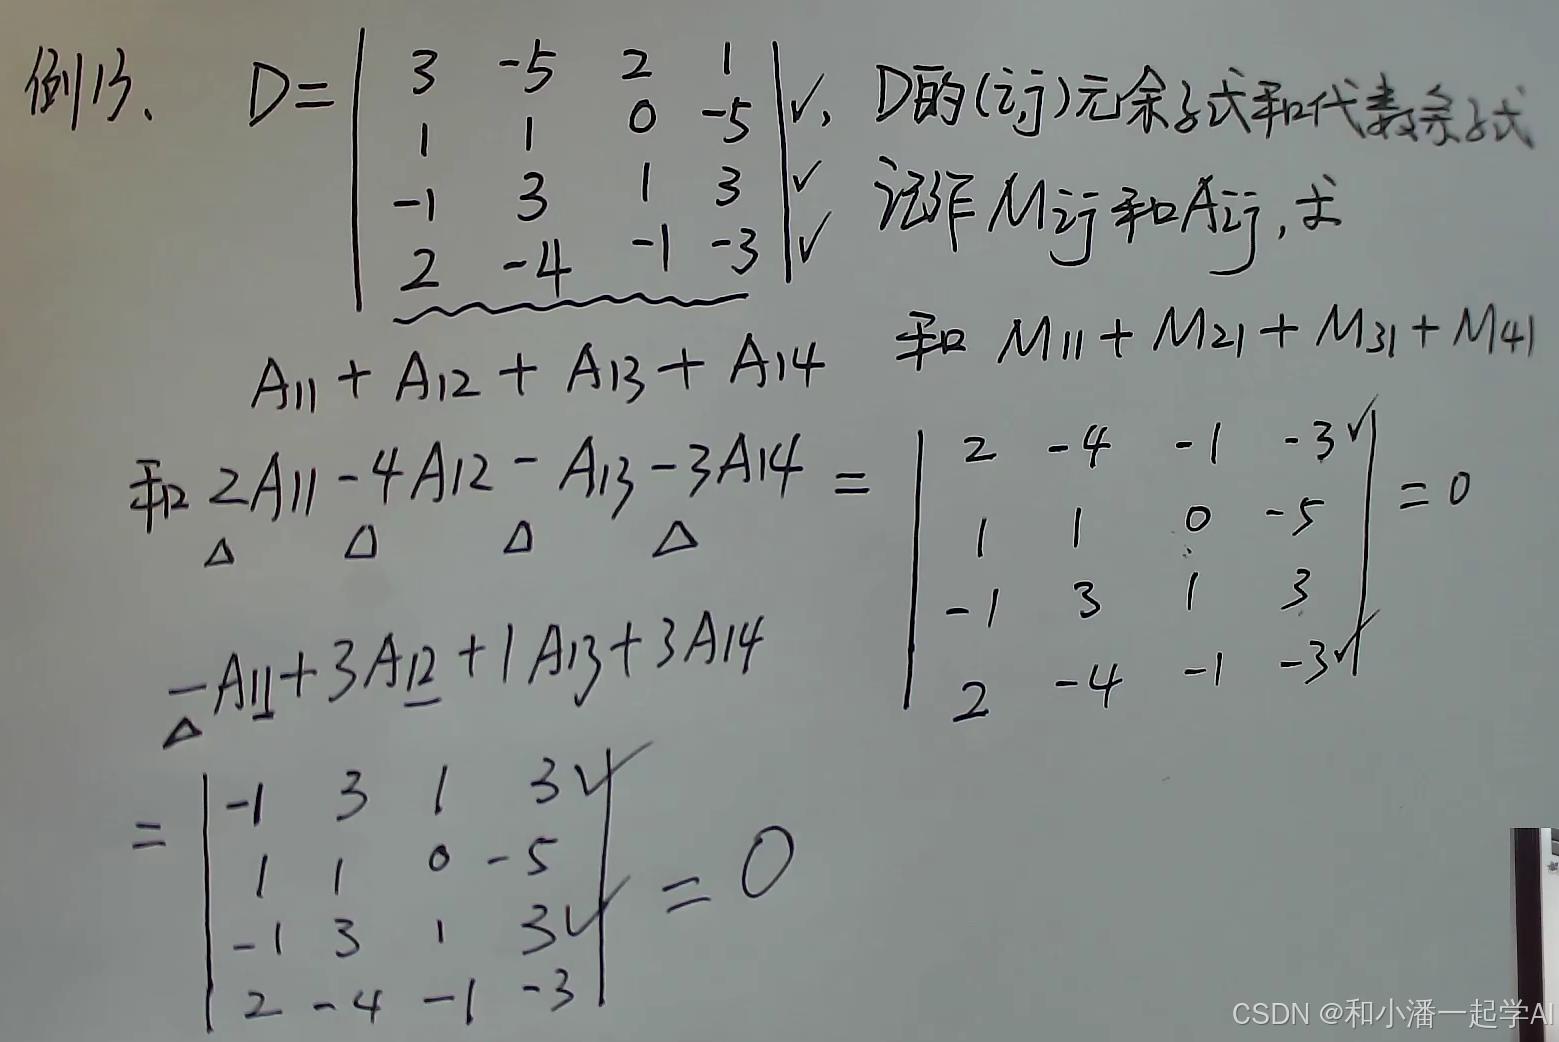 例13、 D= | 3 -5 2 1 | ✓, D的(i,j)元余子式和代数余子式
| 1 1 0 -5 |
| -1 3 1 3 | ✓ 记作 Mij 和 Aij, 求
| 2 -4 -1 -3 | ✓
A11 + A12 + A13 + A14 和 M11 + M21 + M31 + M41
和 2A11 - 4A12 - A13 - 3A14 = | 2 -4 -1 -3 ✓ | = 0
| 1 1 0 -5 |
| -1 3 1 3 |
| 2 -4 -1 -3 ✓ |
△ △ △ △
-A11 + 3A12 + 1A13 + 3A14
△
= | -1 3 1 3 ✓ | = 0
| 1 1 0 -5 |
| -1 3 1 3 ✓ |
| 2 -4 -1 -3 |
CSDN @和小潘一起学AI